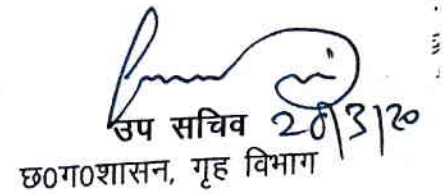 उप सचिव 28/3/20
छ0ग0शासन, गृह विभाग